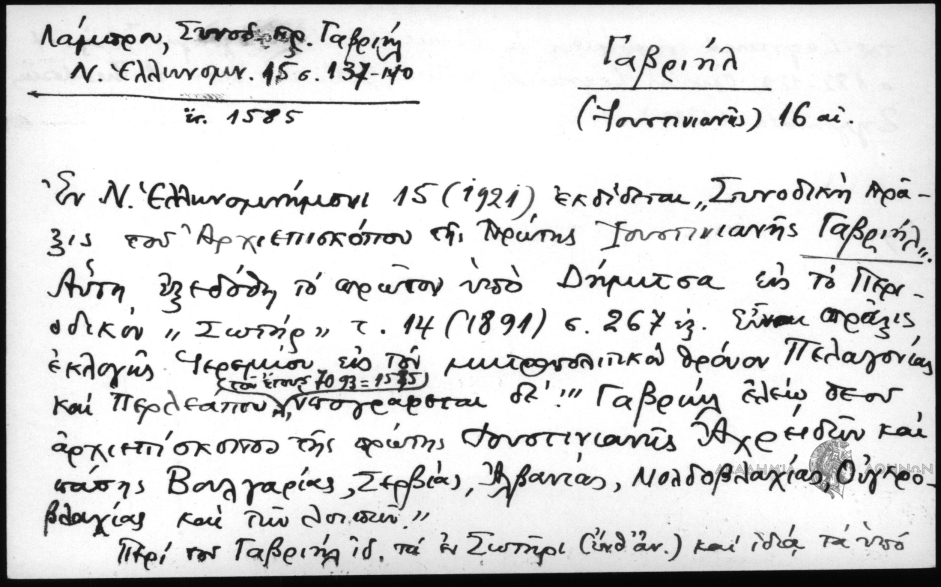 Λάμπρου, Συνοδ. πρ. Γαβριὴλ
Ν. Ἑλληνομν. 15 σ. 137-140
ἔτ. 1585
Γαβριήλ
(Ἰουστινιανῆς) 16 αἰ.
Ἐν Ν. Ἑλληνομνήμονι 15 (1921) ἐκδίδεται „Συνοδικὴ πρᾶ-
ξις τοῦ Ἀρχιεπισκόπου τῆς Πρώτης Ἰουστινιανῆς Γαβριήλ".
Αὕτη ἐξεδόθη τὸ πρῶτον ὑπὸ Δήμιτσα εἰς τὸ Περι-
οδικὸν „Σωτήρ" τ. 14 (1891) σ. 267 ἑξ. Εἶναι πρᾶξις
ἐκλογῆς Ἱερεμίου εἰς τὸν μητροπολιτικὸν θρόνον Πελαγονίας
τοῦ ἔτους 7093 = 1585
καὶ Περλεάπου, ὑπογράφεται δέ: "Γαβριὴλ ἐλέῳ θεοῦ
ἀρχιεπίσκοπος τῆς πρώτης Ἰουστινιανῆς Ἀχρειδῶν καὶ
πάσης Βουλγαρίας, Σερβίας, Ἀλβανίας, Μολδοβλαχίας, Οὐγγρο-
βλαχίας καὶ τῶν λοιπῶν."
Περὶ τοῦ Γαβριὴλ ἰδ. τὰ ἐν Σωτῆρι (ἔνθ' ἀν.) καὶ ἰδίᾳ τὰ ὑπὸ
ΑΚΑΔΗΜΙΑ ΑΘΗΝΩΝ